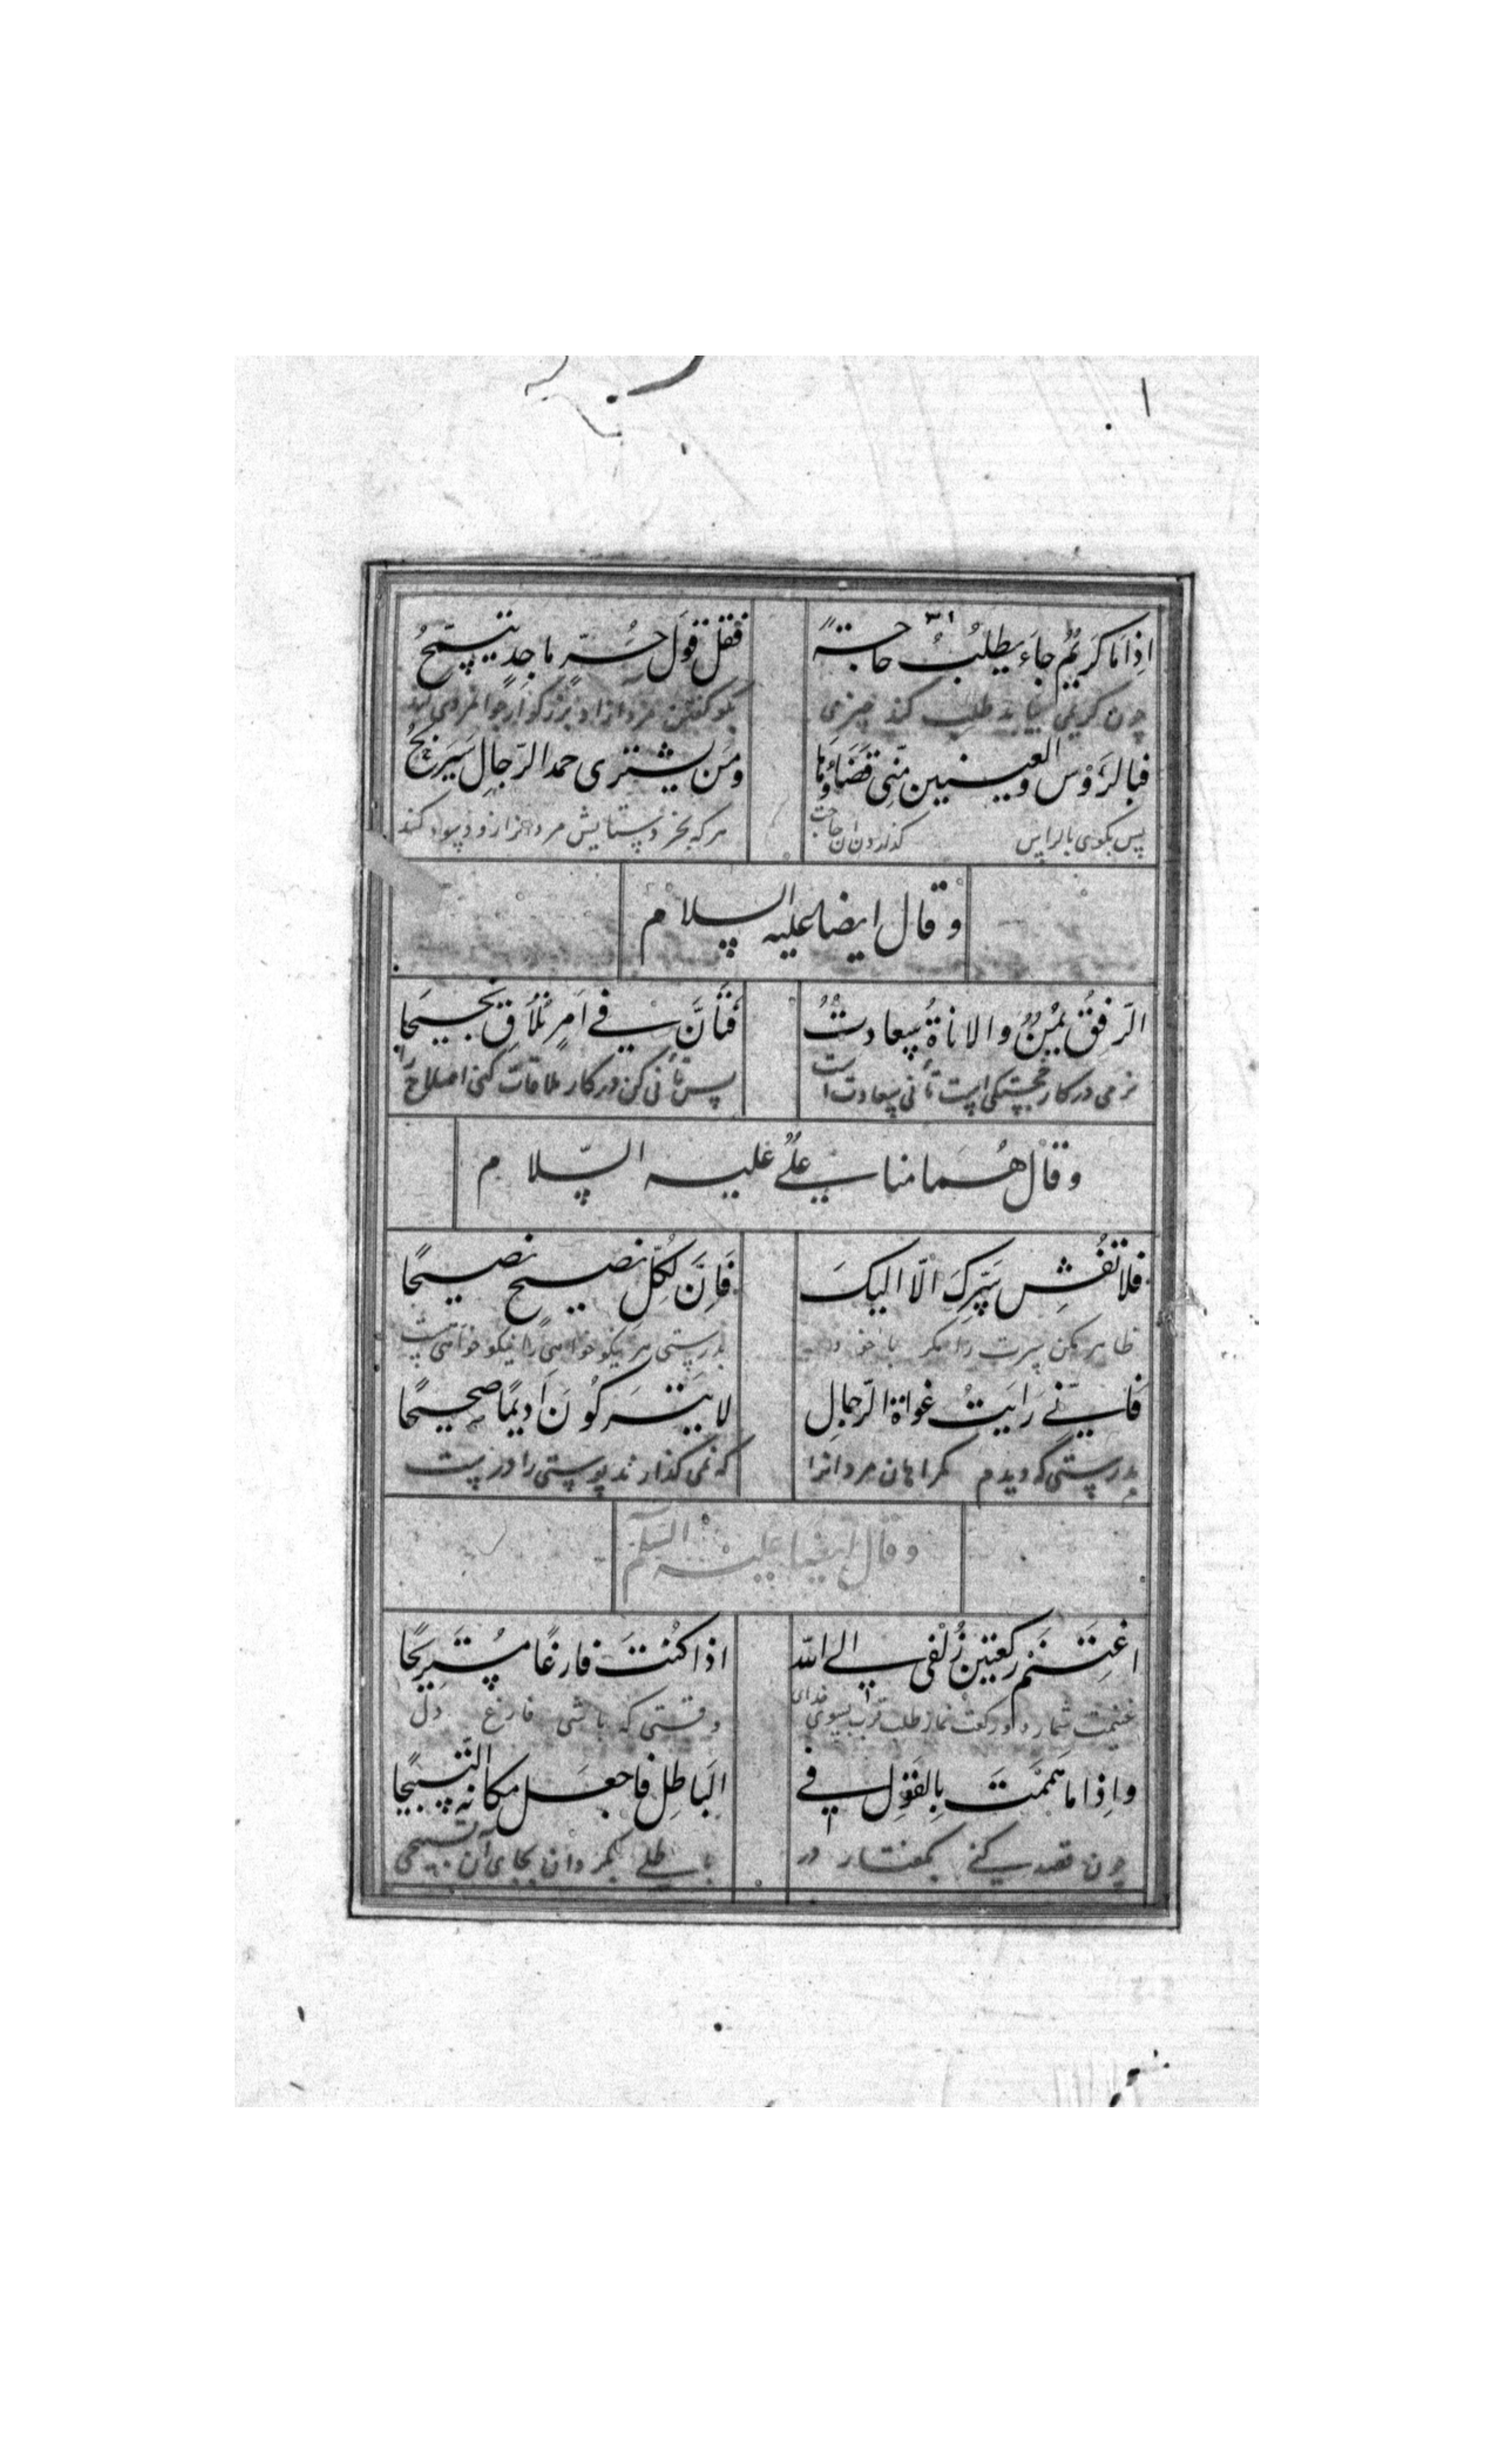 اِذَا مَا كَرِيمٌ جَاءَ يَطلُبُ حَاجَةً
فَقُل قَولَ حُرٍّ مَاجِدٍ يَتَسَمَّحُ
چون کریمی بیاید طلب کند چیزی
بگو گفتن مرد ازاد بزرگوار جوانمردی کند
فبالرَّؤس والعینین مِنّی قَضَاؤُهَا
وَمَن یشتری حمد الرّجالِ سَیَربَحُ
پس بکوی بالراس گذاردن ان حاجت
هرکه بخرد ستایش مردم را زود سود کند
وقال ایضا علیه السلام
الرّفِقُ یُمنٌ والاناةُ سعادةٌ
فَتَأَنَّ فی اَمرٍ تُلَاقِ نَجِیحًا
نرمی در کار خجستگی است تأنی سعادت است
پس تأنی کن در کار ملاقات کنی اصلاح را
وقال همامنا علیٌ علیه السّلام
فلا تُفشِ سِرَّكَ الّا الیكَ
فَاِنَّ لِكُلِّ نصیحٍ نصیحًا
ظاهر مکن سرت را مگر با خود
بدرستی هر نیکو خواهی را نیکو خواهی
فَاِنّی رَایَتُ غواة الرّجالِ
لا یَترَكُونَ اَدیمًا صحیحًا
بدرستی که دیدم گمراهان مردانرا
که نمی گذارند پوستی را درست
وقال ایضا علیه السّلام
اغتَنِم رکعتین زُلفی الی الله
اذا كُنتَ فارغًا مُستَرِیحًا
غنیمت شمار دو رکعت نماز طلب قرب بسوی خدای
وقتی که باشی فارغ دل
واِذا ما هَمَمتَ بِالقَولِ فی
البَاطِلِ فاجعَل مكانَه التّسبیحَا
چون قصد کنی بگفتار در
باطلی بگردان بجای آن تسبیحی